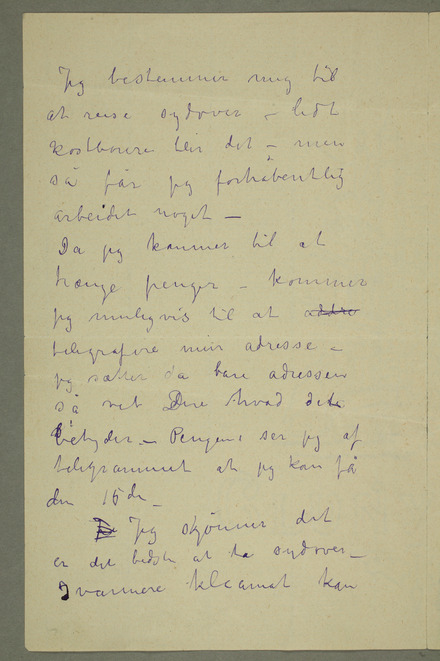 Jeg bestemmer mig til
at reise sydover – lidt
kostbarere blir det – men
så får jeg forhåbentlig
arbeidet noget –
Da jeg kommer til at
trænge penger – kommer
jeg muligvis til at
telegrafere min adresse –
jeg sætter da bare adressen
så vet Dere hvad det
betyder. – Pengene ser jeg af
telegrammet at jeg kan få
den 15de –
Jeg skjønner det
er det bedste at ta sydover –
I varmere kleamat kan